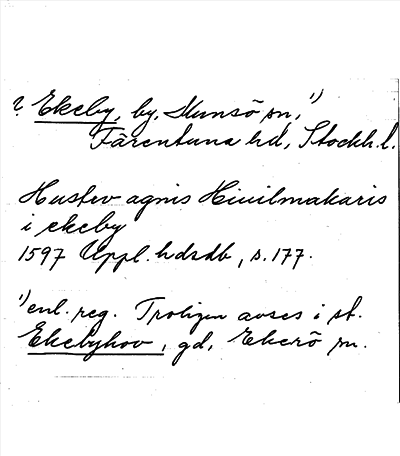 ? Ekeby, by, Munsö sn, 1)
Färentuna hd, Stockh. l.
Hustrv agnis Hiulmakaris
i ekeby
1597 Uppl. hdrdb, s. 177.
1) enl. reg. Troligen avses i st.
Ekebyhov, gd, Ekerö sn.